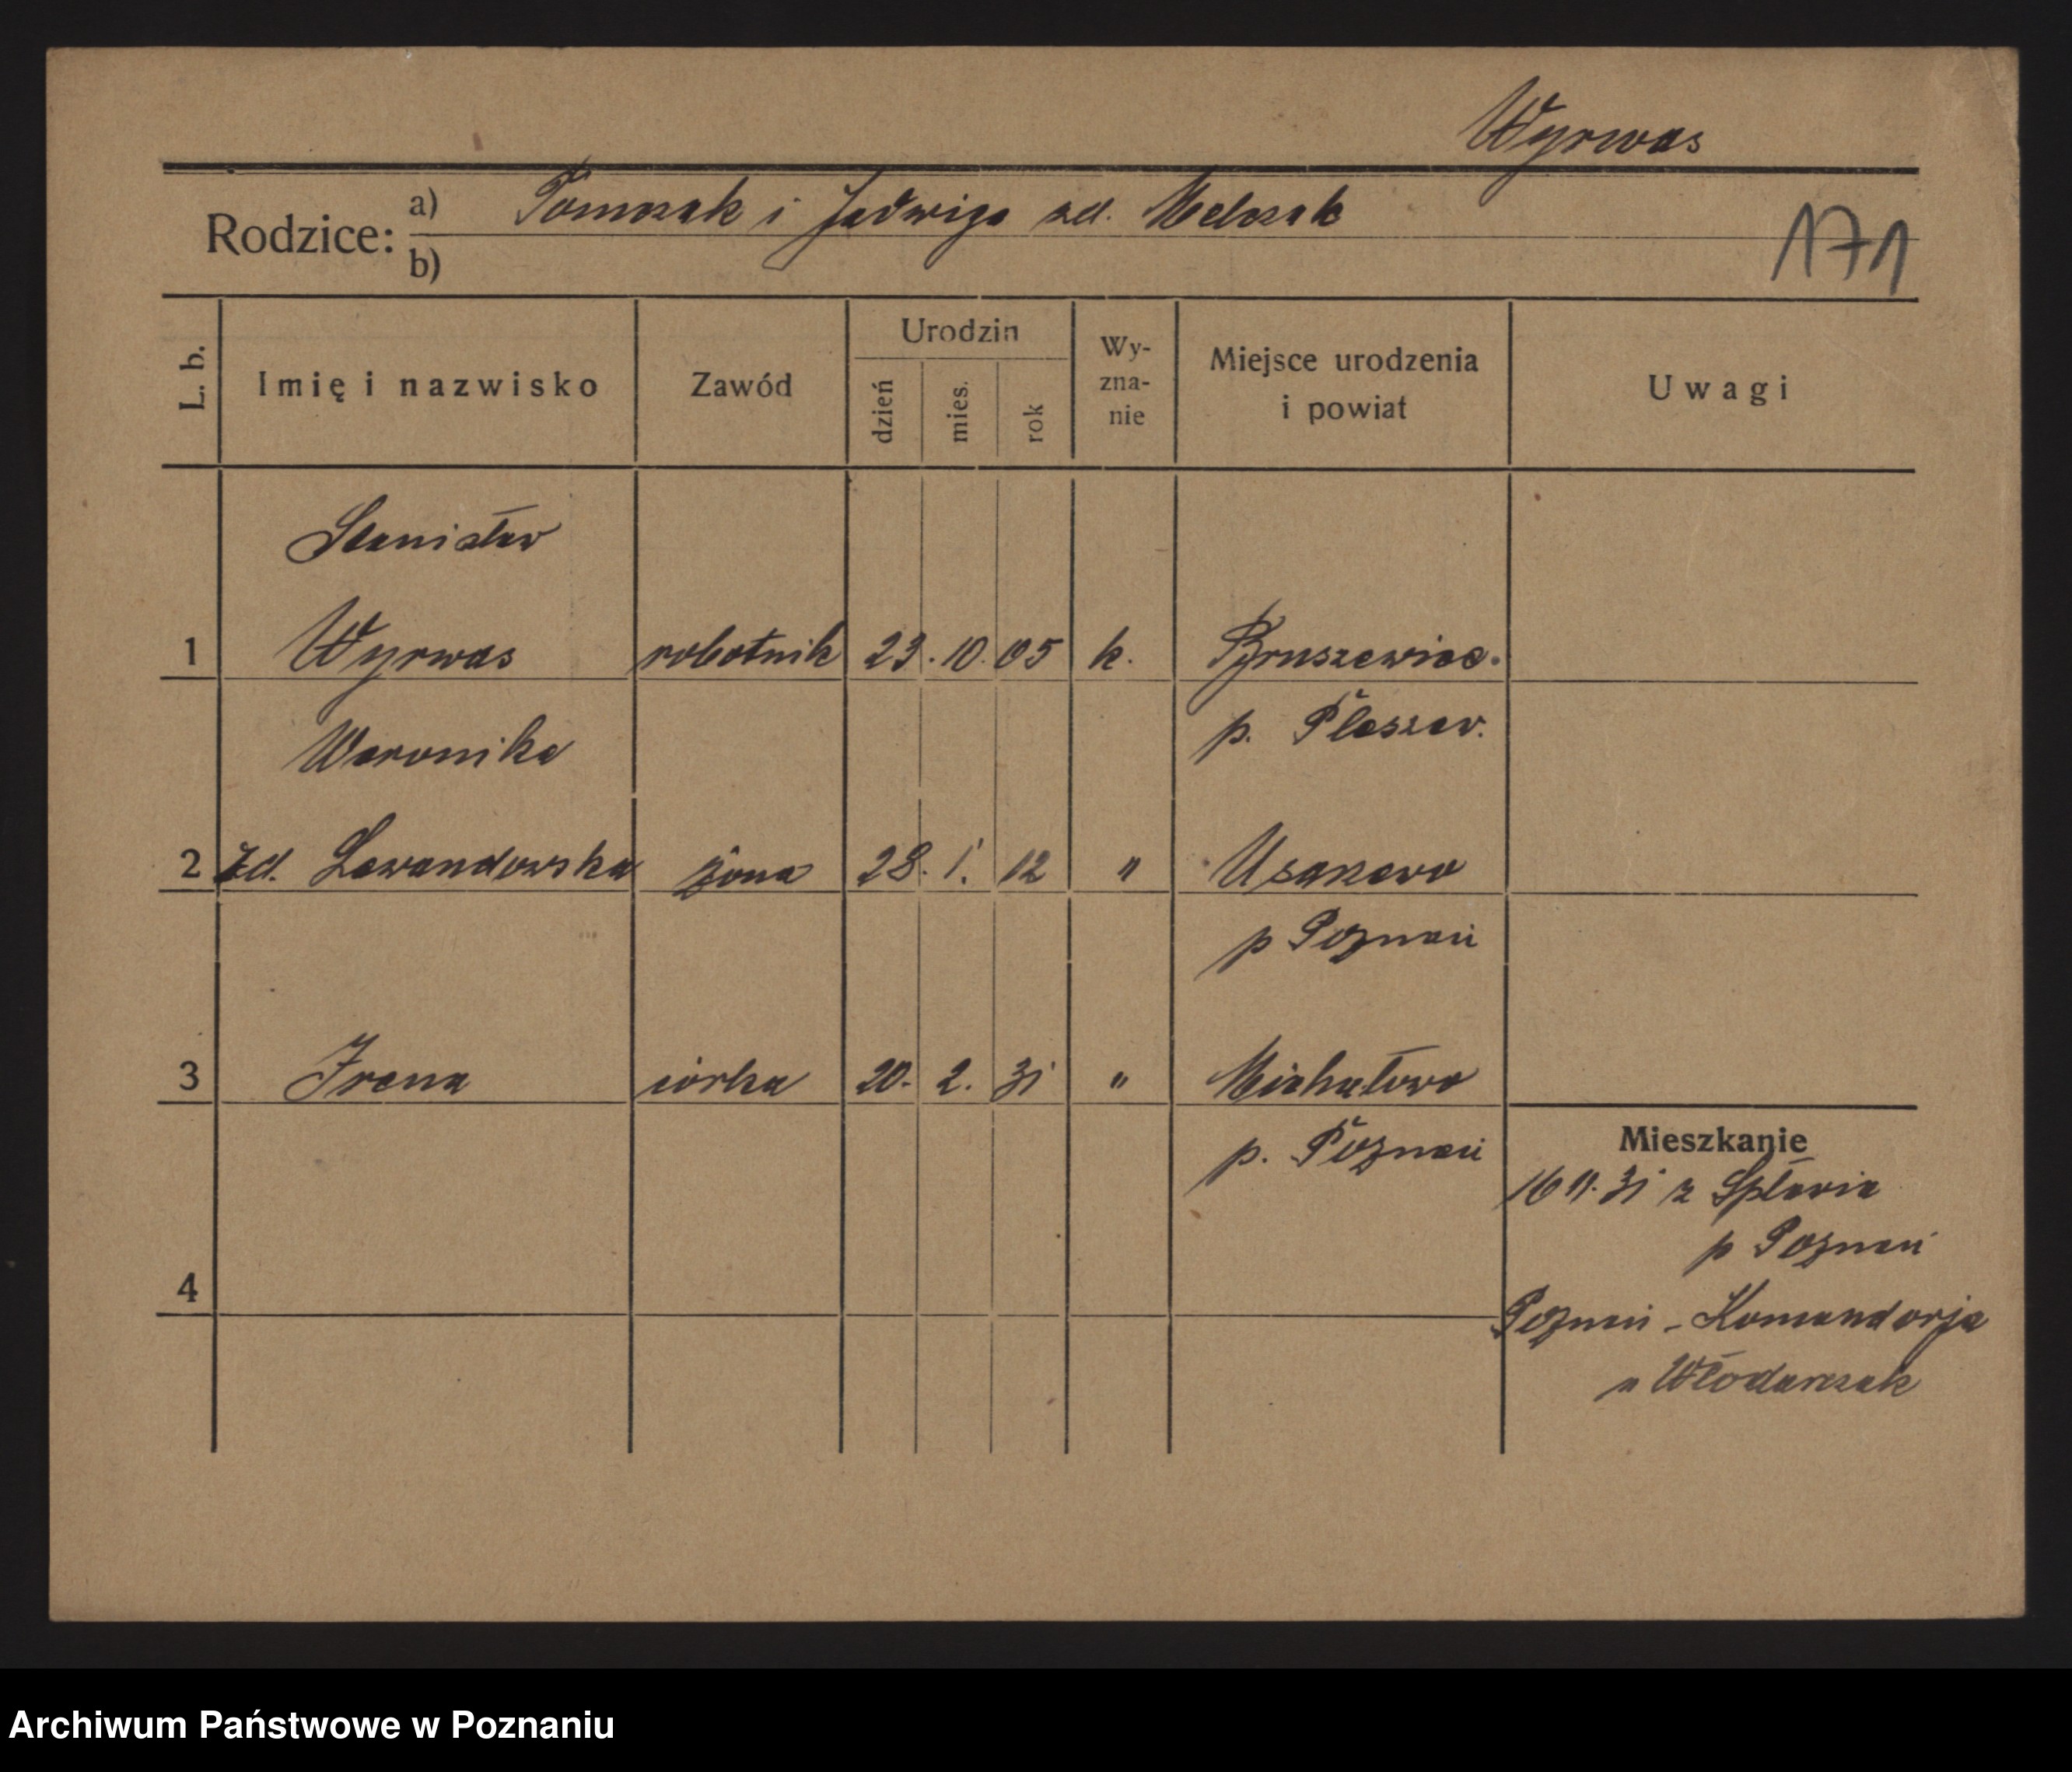 Wyrwas
Rodzice: a) Tomczak i Jadwiga zd. Melczak
b)
171
L. b.
Imię i nazwisko
Zawód
Urodzin
dzień
mies.
rok
Wy-
zna-
nie
Miejsce urodzenia
i powiat
Uwagi
Stanisław
1 Wyrwas robotnik 23. 10. 05 k.
p. Pleszew.
Weronika
2 zd. Lewandowska żona 28. 1. 12 "
p Poznań
3 Irena córka 20. 2. 31 " Michałowo
p. Poznań
Mieszkanie
16 11. 31 z Spławia
p Poznań
4
Poznań - Komandorja
u Włodarczak
Archiwum Państwowe w Poznaniu